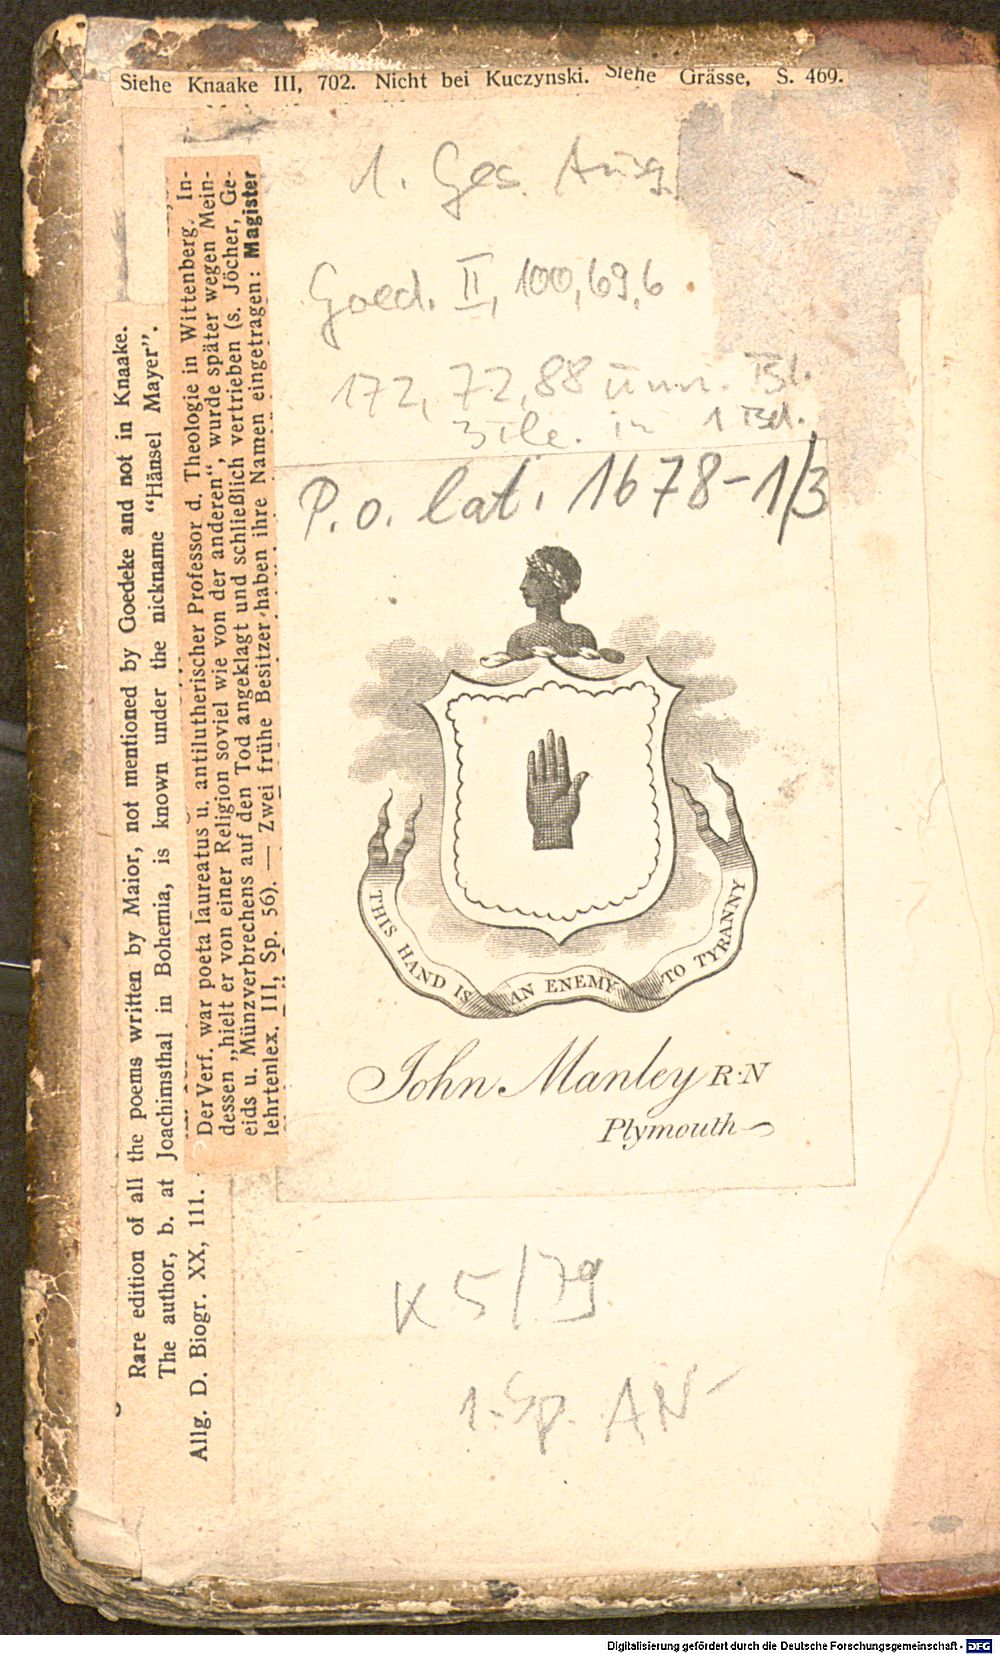 Siehe Knaake III, 702. Nicht bei Kuczynski. Siehe Grässe, S. 469.
1. Ges. Ausg.
Goed. II, 100,69,6.
172, 72, 88 unn. Bl.
3 Tle. in 1 Bd.
P.o. lat. 1678-1/3
Rare edition of all the poems written by Maior, not mentioned by Goedeke and not in Knaake.
The author, b. at Joachimsthal in Bohemia, is known under the nickname “Hänsel Mayer”.
Allg. D. Biogr. XX, 111.
Der Verf. war poeta laureatus u. antilutherischer Professor d. Theologie in Wittenberg. In-
dessen „hielt er von einer Religion soviel wie von der anderen“, wurde später wegen Mein-
eids u. Münzverbrechens auf den Tod angeklagt und schließlich vertrieben (s. Jöcher, Ge-
lehrtenlex. III, Sp. 56). — Zwei frühe Besitzer haben ihre Namen eingetragen: Magister
THIS HAND IS AN ENEMY TO TYRANNY
John Manley R·N
Plymouth
K 5/79
1. Sp. AN-
Digitalisierung gefördert durch die Deutsche Forschungsgemeinschaft - DFG